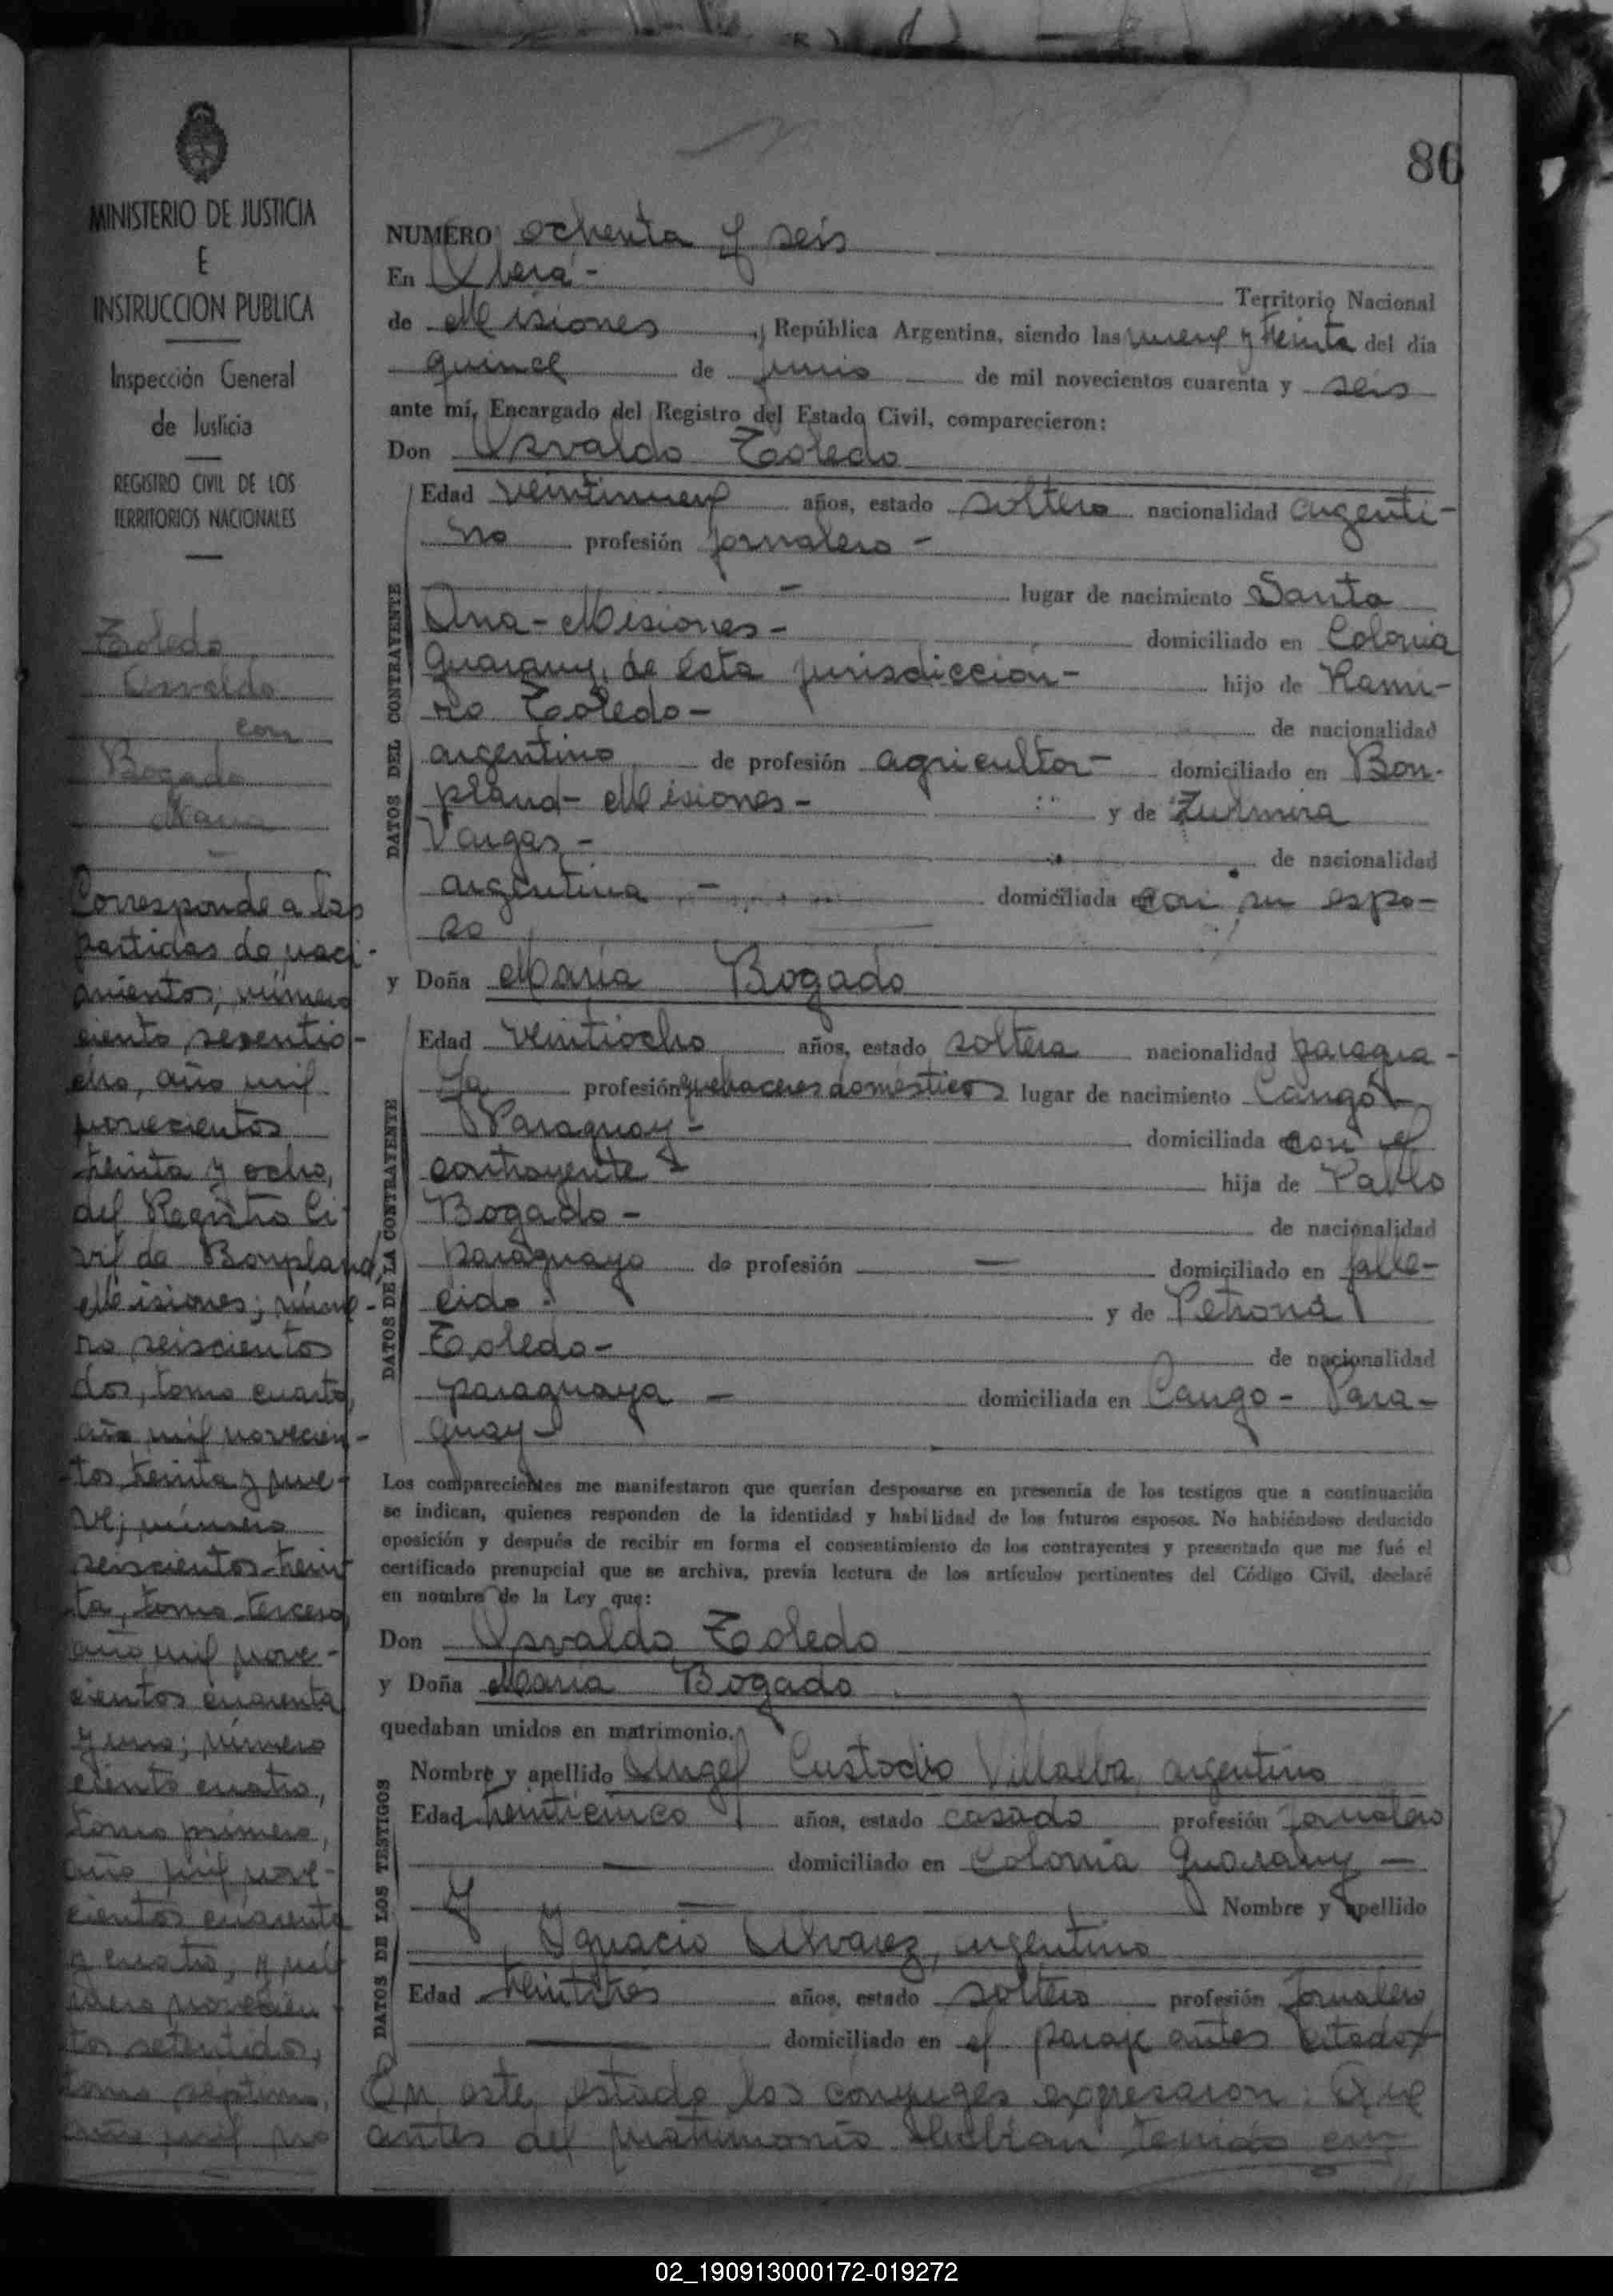 86
MINISTERIO DE JUSTICIA
E
INSTRUCCION PUBLICA
Inspección General
de Justicia
REGISTRO CIVIL DE LOS
TERRITORIOS NACIONALES
Toledo
Osvaldo
con
Bogado
Maria
Corresponde a las
partidas de naci-
mientos; número
ciento sesentio-
cho, año mil
novecientos
treinta y ocho,
del Registro Ci-
vil de Bonpland,
Misiones; núme-
ro seiscientos
dos, tomo cuarto,
año mil novecien-
tos treinta y nue-
ve; número
seiscientos trein-
ta, tomo tercero,
año mil nove-
cientos cuarenta
y uno; número
ciento cuatro,
tomo primero,
año mil nove-
cientos cuarenta
y cuatro, y nú-
mero novecien-
tos setentidos,
tomo séptimo,
año mil no
NUMERO ochenta y seis
En Oberá - Territorio Nacional
de Misiones, República Argentina, siendo las nueve y treinta del día
quince de junio de mil novecientos cuarenta y seis
ante mí, Encargado del Registro del Estado Civil, comparecieron:
Don Osvaldo Toledo
DATOS DEL CONTRAYENTE
Edad veintinueve años, estado soltero nacionalidad argenti-
no profesión jornalero -
- lugar de nacimiento Santa
Ana - Misiones - domiciliado en Colonia
Guarany, de ésta jurisdiccion - hijo de Rami-
ro Toledo - de nacionalidad
argentino de profesión agricultor - domiciliado en Bon-
pland - Misiones - y de Zulmira
Vargas - de nacionalidad
argentina - domiciliada en con su espo-
so
y Doña Maria Bogado
DATOS DE LA CONTRAYENTE
Edad veintiocho años, estado soltera nacionalidad paragua-
ya profesión quehaceres domésticos lugar de nacimiento Cangó -
Paraguay - domiciliada con el
contrayente - hija de Pablo
Bogado - de nacionalidad
paraguayo de profesión — domiciliado en falle-
cido. y de Petrona
Toledo - de nacionalidad
paraguaya - domiciliada en Cango - Para-
guay -
Los comparecientes me manifestaron que querían desposarse en presencia de los testigos que a continuación
se indican, quienes responden de la identidad y habilidad de los futuros esposos. No habiéndose deducido
oposición y después de recibir en forma el consentimiento de los contrayentes y presentado que me fué el
certificado prenupcial que se archiva, previa lectura de los artículos pertinentes del Código Civil, declaré
en nombre de la Ley que:
Don Osvaldo Toledo
y Doña Maria Bogado
quedaban unidos en matrimonio.
DATOS DE LOS TESTIGOS
Nombre y apellido Angel Custodio Villalba, argentino
Edad treinticinco años, estado casado profesión jornalero
— domiciliado en Colonia Guarany —
y — Nombre y apellido
Ignacio Alvarez, argentino
Edad treintitres años, estado soltero profesión jornalero
— domiciliado en el paraje antes citado
En este estado los cónyuges expresaron: Que
antes del matrimonio habian tenido en
02_190913000172-019272